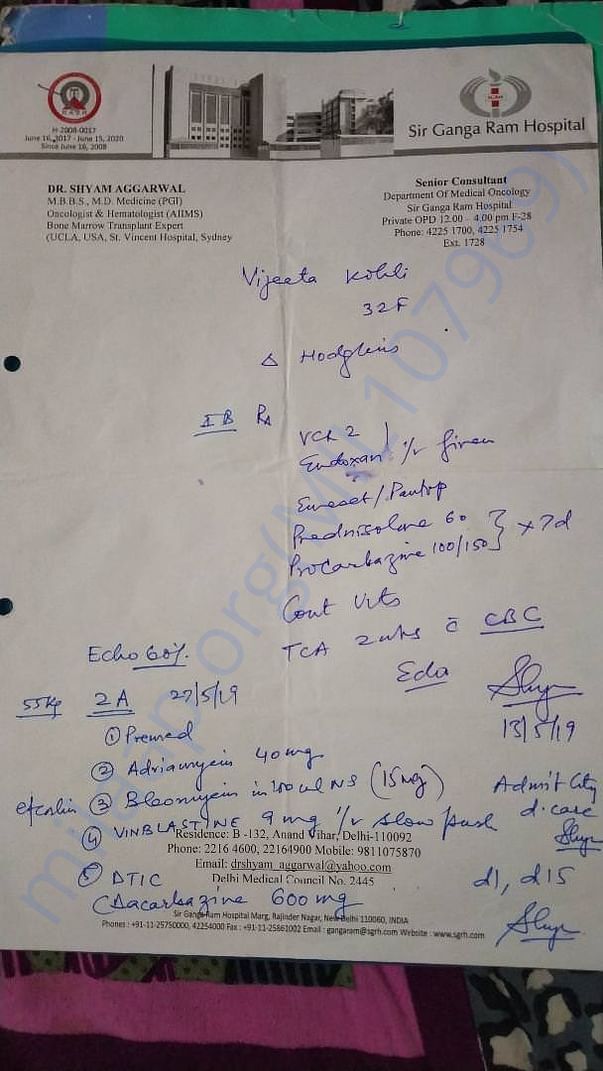 H-2008-0017
June 16, 2017 - June 15, 2020
Since June 16, 2008
Sir Ganga Ram Hospital
DR. SHYAM AGGARWAL
M.B.B.S., M.D. Medicine (PGI)
Oncologist & Hematologist (AIIMS)
Bone Marrow Transplant Expert
(UCLA, USA, St. Vincent Hospital, Sydney
Senior Consultant
Department Of Medical Oncology
Sir Ganga Ram Hospital
Private OPD 12.00 - 4.00 pm F-28
Phone: 4225 1700, 4225 1754
Ext. 1728
Vijeeta Kohli
32F
Δ Hodgkins
IB Rx
VCR 2
Endoxan i/v given
Emeset/Pantop
Prednisolone 60
Procarbazine 100/150 } x 7d
Cont Vits
TCA 2 wks c̄ CBC
Echo 60%
13/5/19
55kg 2A 27/5/19
① Premed
② Adriamycin 40mg
③ Bleomycin in 200ml NS (15mg)
Admit City
d.care
④ VINBLASTINE 9mg i/v slow push
Residence: B -132, Anand Vihar, Delhi-110092
Phone: 2216 4600, 22164900 Mobile: 9811075870
Email: drshyam_aggarwal@yahoo.com
Delhi Medical Council No. 2445
⑤ DTIC
d1, d15
(Dacarbazine 600mg
Sir Ganga Ram Hospital Marg, Rajinder Nagar, New Delhi 110060, INDIA
Phones : +91-11-25750000, 42254000 Fax : +91-11-25861002 Email : gangaram@sgrh.com Website : www.sgrh.com